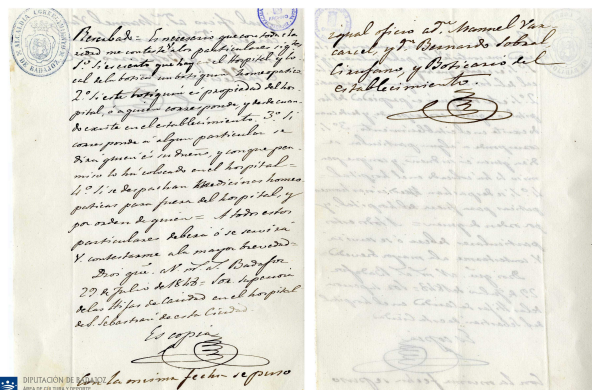 Resevbado = Es necesario que con toda cla
ridad me conteste V. a los particulares sigtes
1º Si es cierto que hay en el hospital y lo
cal de la botica un botiquin homeopatico
2º Si este botiquin es propiedad del hos
pital, ó a quien corresponde, y desde cuan
do existe en el establecimiento. 3º Si
corresponde á algun particular se
dirá quien és su dueño, y con que per
miso lo ha colocado en el hospital =
4º Si se despachan medicinas homeo
paticas para fuera del hospital, y
por orden de quien = A todos estos
particulares deberá ó se servirá
V. contestarme a la mayor brevedad =
Dios gue. á V. m. a. Badajoz
29 de Julio de 1848 = Sor. superiora
de las Hijas de Caridad en el hospital
de S. Sebastian de esta Ciudad.
Es copia
Con la misma fecha se puso
igual oficio a Dn. Manuel
carcel, y Dn. Bernardo Sobral
Cirujano, y Boticario del
establecimiento.
DIPUTACIÓN DE BADAJOZ
ÁREA DE CULTURA Y DEPORTE